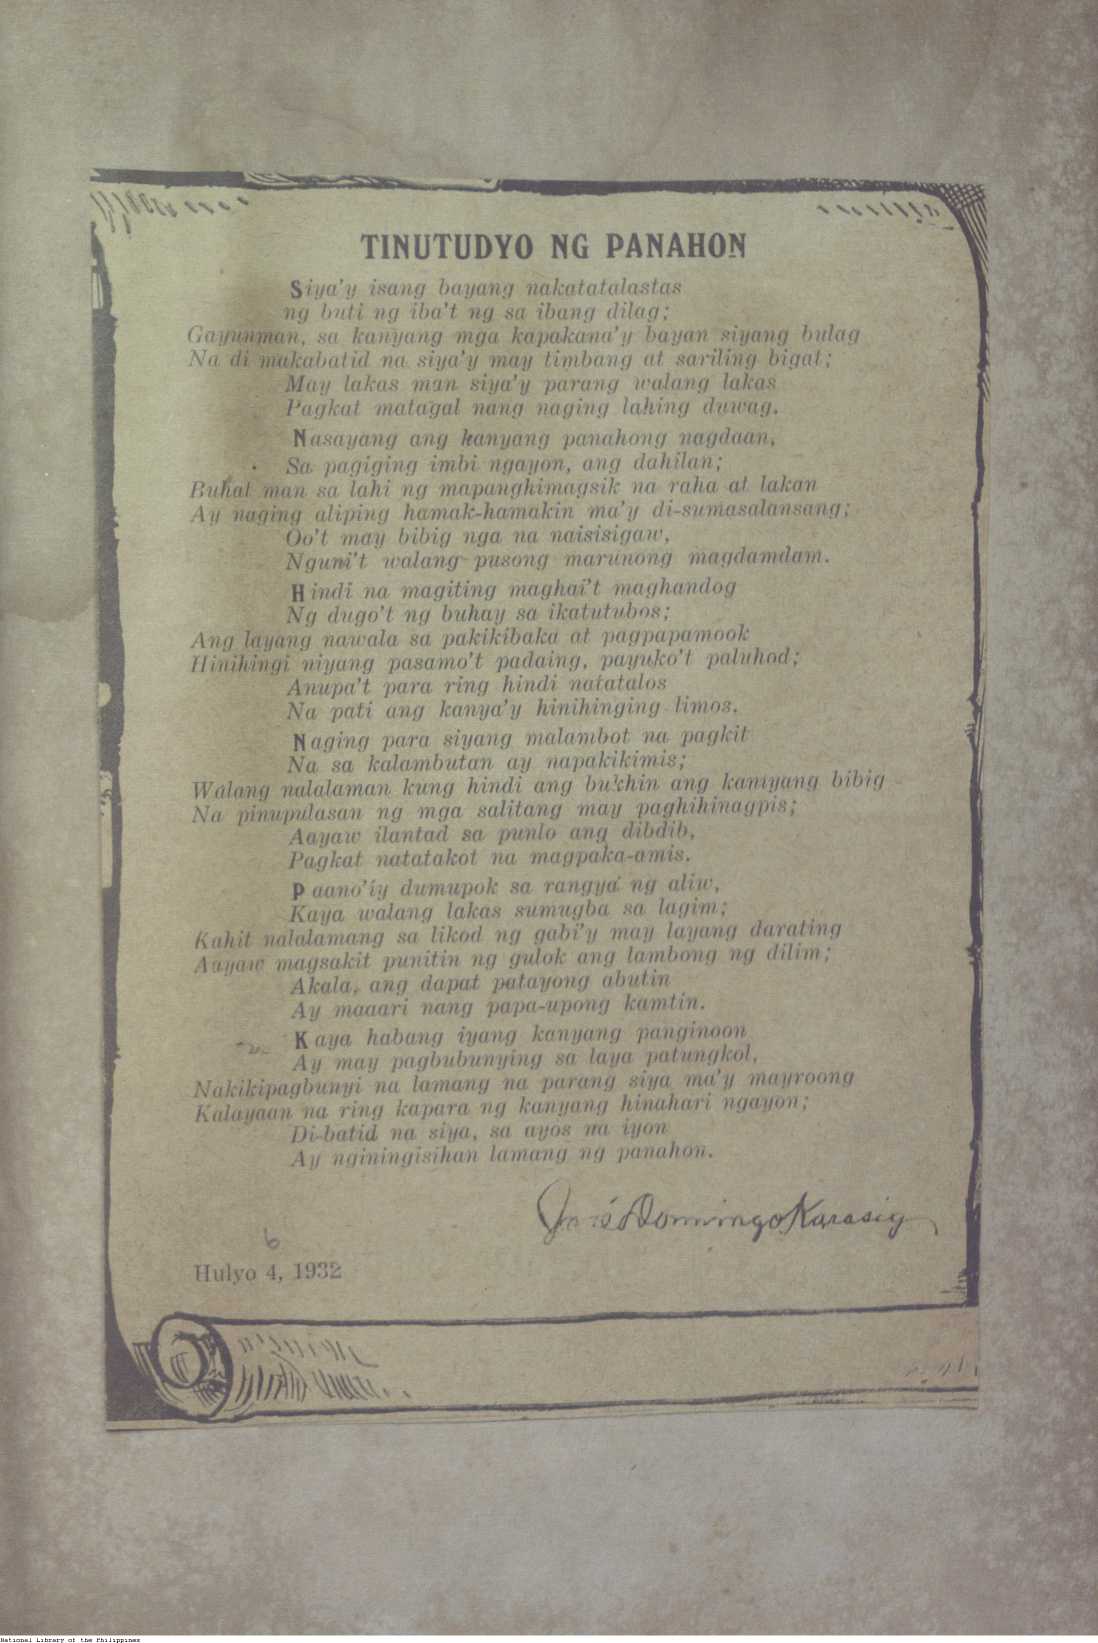 TINUTUDYO NG PANAHON
Siya'y isang bayang nakatatalastas
ng buti ng iba't ng sa ibang dilag;
Gayunman, sa kanyang mga kapakana'y bayan siyang bulag
Na di makabatid na siya'y may timbang at sariling bigat;
May lakas man siya'y parang walang lakas
Pagkat matagal nang naging lahing duwag.
Nasayang ang kanyang panahong nagdaan,
Sa pagiging imbi ngayon, ang dahilan;
Buhat man sa lahi ng mapanghimagsik na raha at lakan
Ay naging aliping hamak-hamakin ma'y di-sumasalansang;
Oo't may bibig nga na naisisigaw,
Nguni't walang pusong marunong magdamdam.
Hindi na magiting maghai't maghandog
Ng dugo't ng buhay sa ikatutubos;
Ang layang nawala sa pakikibaka at pagpapamook
Hinihingi niyang pasamo't padaing, payuko't paluhod;
Anupa't para ring hindi natatalos
Na pati ang kanya'y hinihinging limos.
Naging para siyang malambot na pagkit
Na sa kalambutan ay napakikimis;
Walang nalalaman kung hindi ang bukhin ang kaniyang bibig
Na pinupulasan ng mga salitang may paghihinagpis;
Aayaw ilantad sa punlo ang dibdib,
Pagkat natatakot na magpaka-amis.
Paano'iy dumupok sa rangya ng aliw,
Kaya walang lakas sumugba sa lagim;
Kahit nalalamang sa likod ng gabi'y may layang darating
Aayaw magsakit punitin ng gulok ang lambong ng dilim;
Akala, ang dapat patayong abutin
Ay maaari nang papa-upong kamtin.
Kaya habang iyang kanyang panginoon
Ay may pagbubunying sa laya patungkol,
Nakikipagbunyi na lamang na parang siya ma'y mayroong
Kalayaan na ring kapara ng kanyang hinahari ngayon;
Di-batid na siya, sa ayos na iyon
Ay nginingisihan lamang ng panahon.
José Domingo Karasig
6
Hulyo 4, 1932
National Library of the Philippines